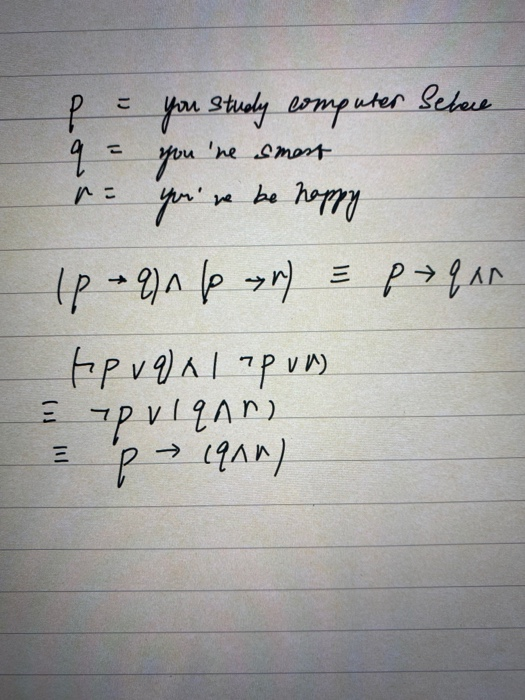 p = you study computer Scieve
q = you're smart
r = you've be happy
(p → q) ∧ (p → r) ≡ p → q ∧ r
(¬p ∨ q) ∧ (¬p ∨ r)
≡ ¬p ∨ (q ∧ r)
≡ p → (q ∧ r)